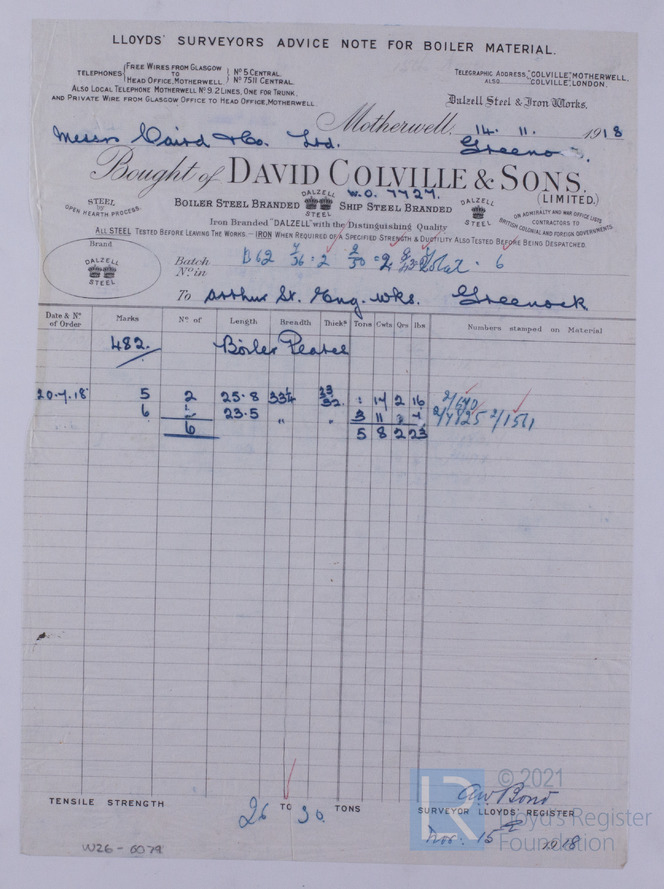 LLOYDS' SURVEYORS ADVICE NOTE FOR BOILER MATERIAL.
TELEPHONES { FREE WIRES FROM GLASGOW TO HEAD OFFICE, MOTHERWELL } Nº 5 CENTRAL. Nº 7511 CENTRAL.
ALSO LOCAL TELEPHONE MOTHERWELL Nº 9. 2 LINES, ONE FOR TRUNK,
AND PRIVATE WIRE FROM GLASGOW OFFICE TO HEAD OFFICE, MOTHERWELL
TELEGRAPHIC ADDRESS, "COLVILLE", MOTHERWELL.
ALSO "COLVILLE", LONDON.
Dalzell Steel & Iron Works,
Motherwell, 14. 11. 1918
Messrs Caird & Co. Ltd. Greenock.
Bought of DAVID COLVILLE & SONS, (LIMITED.)
W.O. 7727.
STEEL BY OPEN HEARTH PROCESS.
BOILER STEEL BRANDED DALZELL STEEL SHIP STEEL BRANDED DALZELL STEEL
ON ADMIRALTY AND WAR OFFICE LISTS
CONTRACTORS TO
BRITISH COLONIAL AND FOREIGN GOVERNMENTS.
Iron Branded "DALZELL" with the Distinguishing Quality
ALL STEEL TESTED BEFORE LEAVING THE WORKS. — IRON WHEN REQUIRED OF A SPECIFIED STRENGTH & DUCTILITY ALSO TESTED BEFORE BEING DESPATCHED.
Brand
DALZELL STEEL
Batch Nº in B62 Total. 6
To Arthur St. Eng. Wks. Greenock
Date & Nº of Order Marks Nº of Length Breadth Thickˢ Tons Cwts Qrs lbs Numbers stamped on Material
482. Boiler Plates
20.7.18 5 2 25.8 33¼ 23/32 1 17 2 16 2/690
6 23.5 " " 3 11 2/4825 2/1511
6 5 8 2 23
TENSILE STRENGTH 26 TO 30. TONS
A W Bond
SURVEYOR LLOYDS' REGISTER
Nov. 15th 1918
W26-0079
LR
© 2021
Lloyd's Register
Foundation